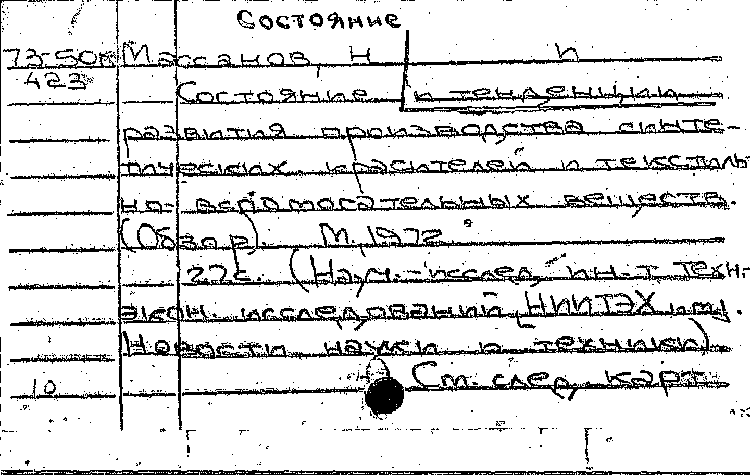 Состояние
73-50к Массанов, Н И
423
Состояние и тенденции
развития производства синте-
тических красителей и текстиль-
но-вспомогательных веществ.
(Обзор). М, 1972
22с. (Науч.-исслед, ин-т техн-
экон. исследований НИИТЭХ
Новости науки и техники)
См. след, карт
10